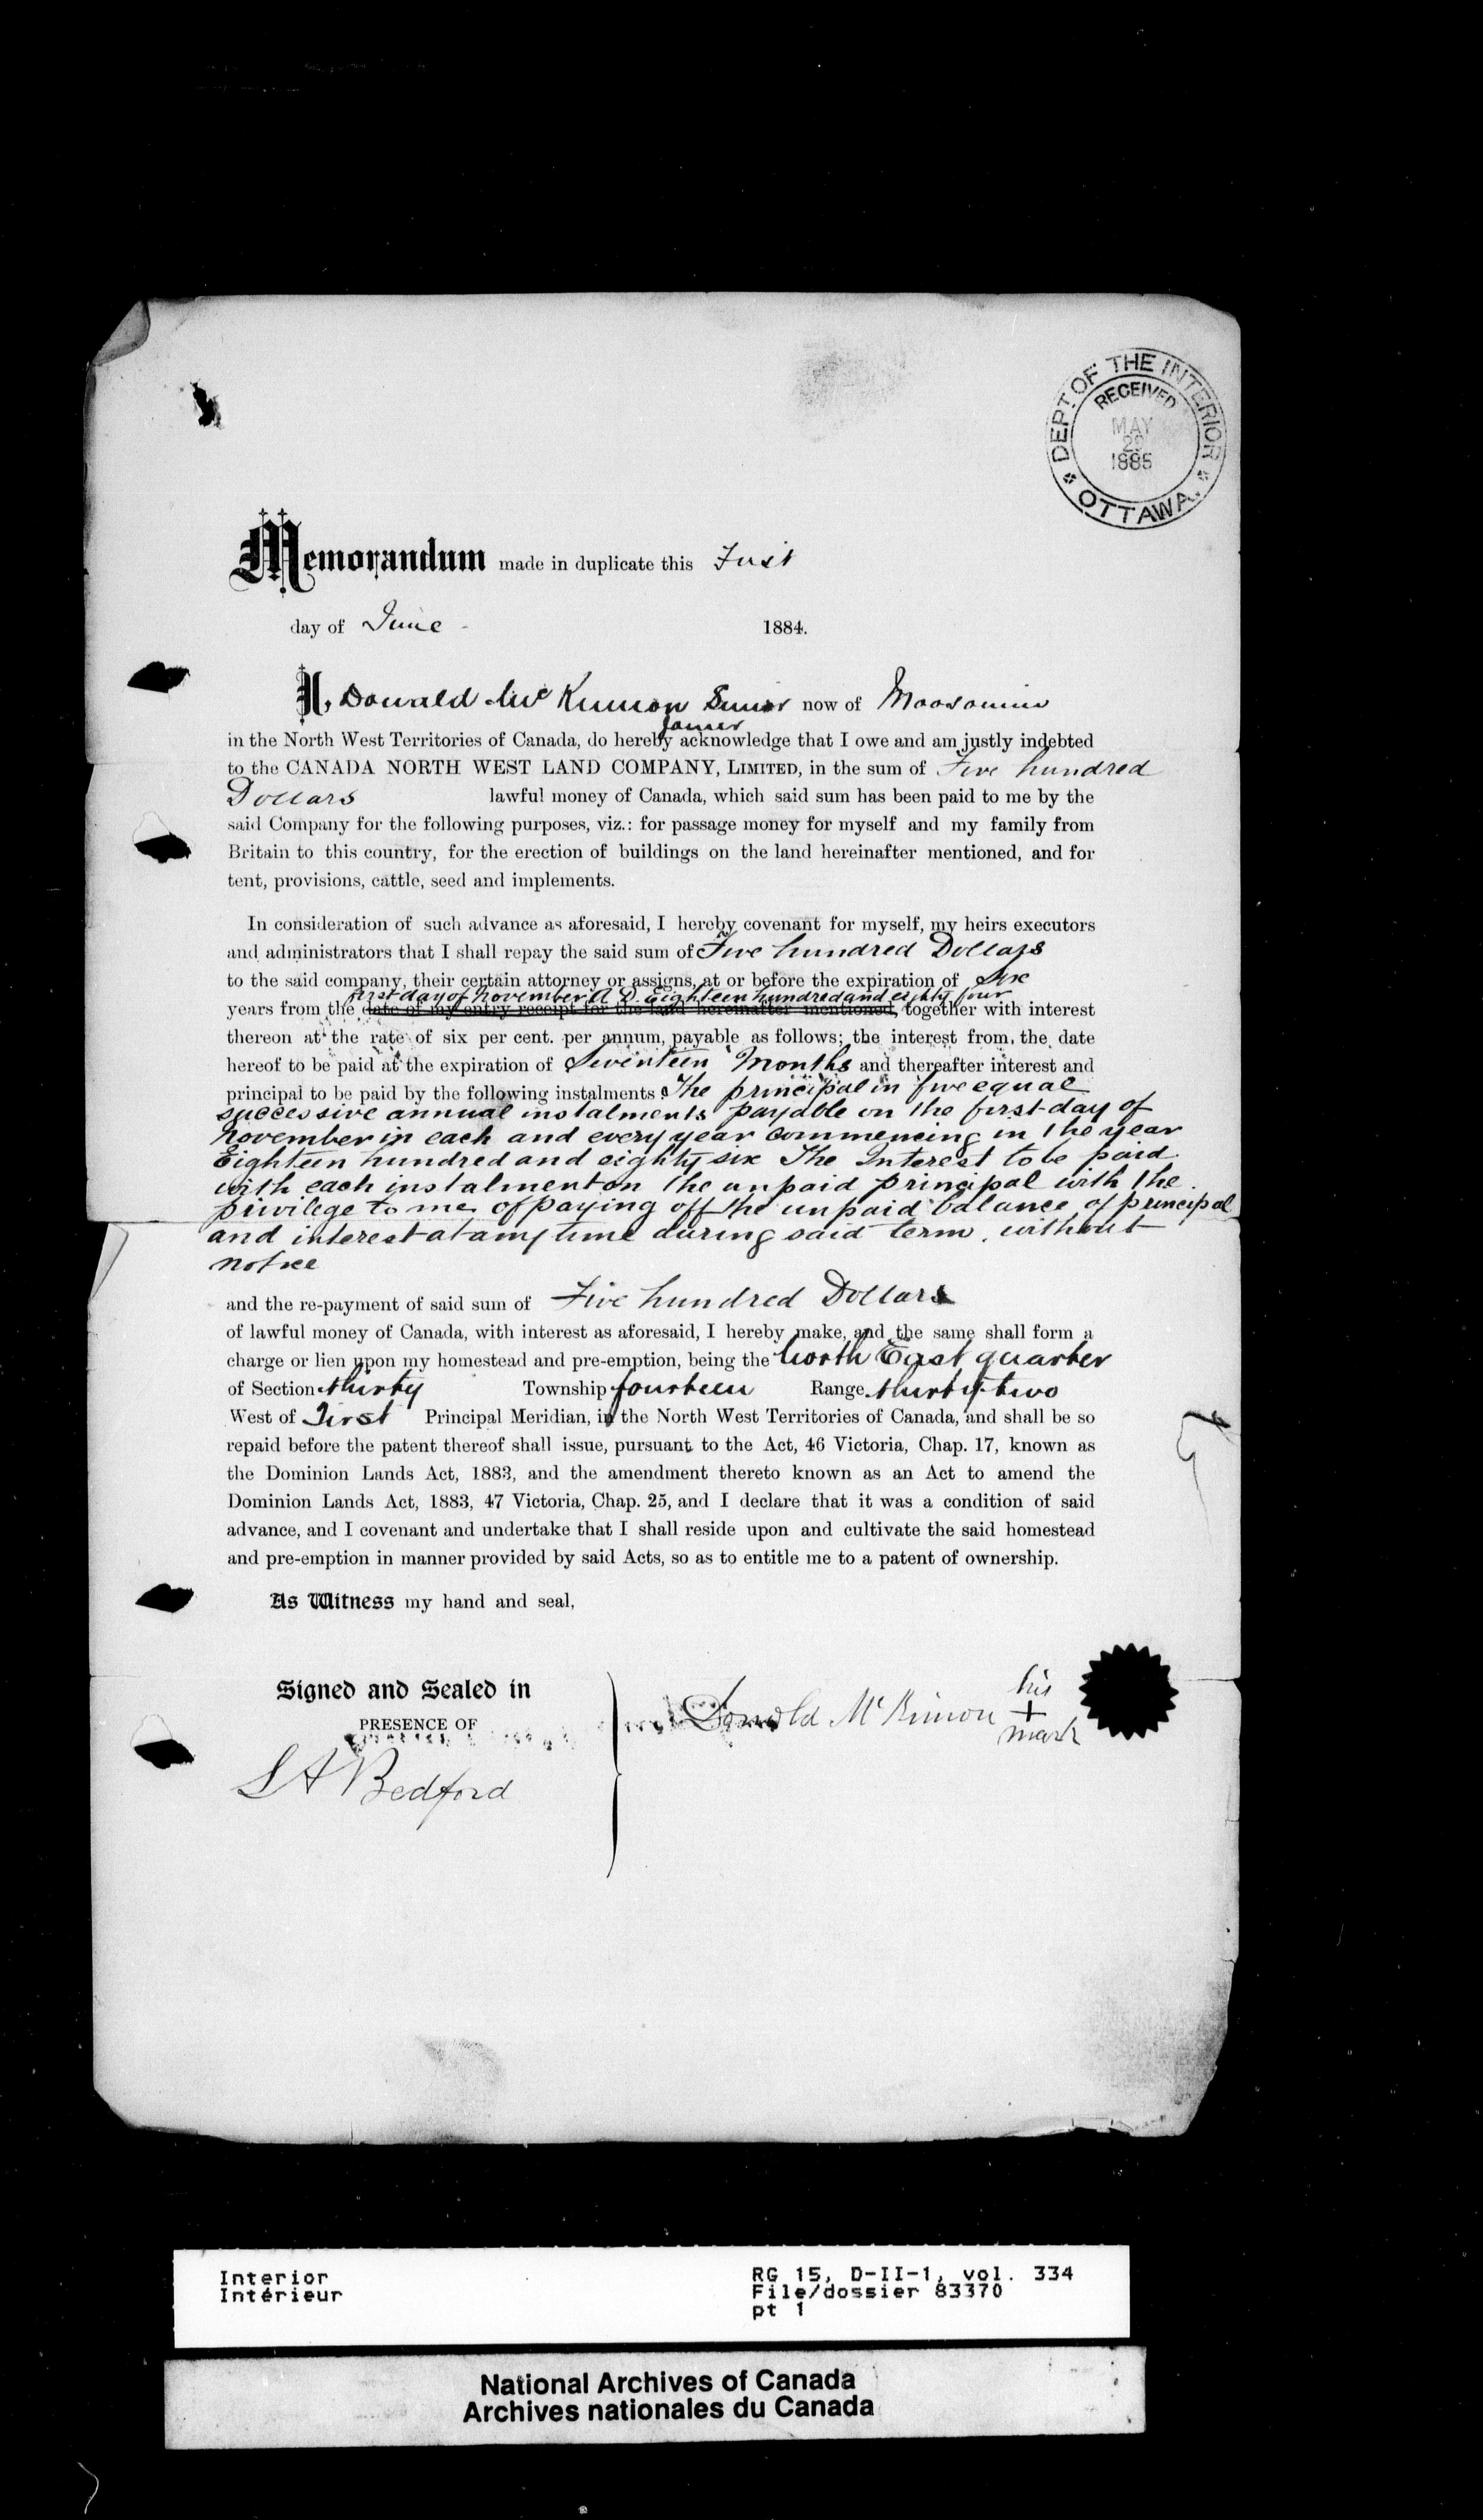 DEPT. OF THE INTERIOR
RECEIVED
MAY
29
1885
OTTAWA.
Memorandum made in duplicate this First
day of June 1884.
I, Donald McKinnon Senior now of Moosomin
in the North West Territories of Canada, do hereby acknowledge that I owe and am justly indebted
to the CANADA NORTH WEST LAND COMPANY, LIMITED, in the sum of Five hundred
Dollars lawful money of Canada, which said sum has been paid to me by the
said Company for the following purposes, viz.: for passage money for myself and my family from
Britain to this country, for the erection of buildings on the land hereinafter mentioned, and for
tent, provisions, cattle, seed and implements.
In consideration of such advance as aforesaid, I hereby covenant for myself, my heirs executors
and administrators that I shall repay the said sum of Five hundred Dollars
to the said company, their certain attorney or assigns, at or before the expiration of Six
first day of November A D. Eighteen hundred and eighty four
years from the date of my entry receipt for the land hereinafter mentioned, together with interest
thereon at the rate of six per cent. per annum, payable as follows; the interest from the date
hereof to be paid at the expiration of Seventeen Months and thereafter interest and
principal to be paid by the following instalments: The principal in five equal
successive annual instalments payable on the first day of
November in each and every year commencing in the year
Eighteen hundred and eighty six The Interest to be paid
with each instalment on the unpaid principal with the
privilege to me of paying off the unpaid balance of principal
and interest at any time during said term, without
notice
and the re-payment of said sum of Five hundred Dollars
of lawful money of Canada, with interest as aforesaid, I hereby make, and the same shall form a
charge or lien upon my homestead and pre-emption, being the North East quarter
of Section thirty Township fourteen Range thirty two
West of First Principal Meridian, in the North West Territories of Canada, and shall be so
repaid before the patent thereof shall issue, pursuant to the Act, 46 Victoria, Chap. 17, known as
the Dominion Lands Act, 1883, and the amendment thereto known as an Act to amend the
Dominion Lands Act, 1883, 47 Victoria, Chap. 25, and I declare that it was a condition of said
advance, and I covenant and undertake that I shall reside upon and cultivate the said homestead
and pre-emption in manner provided by said Acts, so as to entitle me to a patent of ownership.
As Witness my hand and seal,
Signed and Sealed in
PRESENCE OF
S A Bedford
Donald McKinnon his
+
mark
Interior
Intérieur
RG 15, D-II-1, vol. 334
File/dossier 83370
pt 1
National Archives of Canada
Archives nationales du Canada